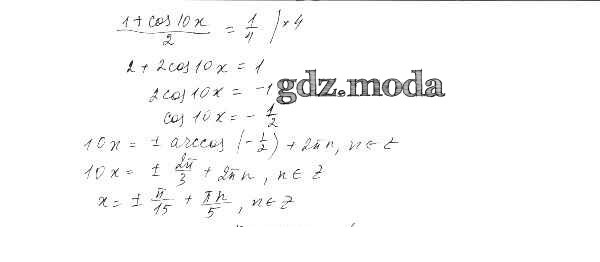 (1 + cos 10x)/2 = 1/4 | × 4
2 + 2cos 10x = 1
2cos 10x = -1
gdz.moda
cos 10x = - 1/2
10x = ± arccos (-1/2) + 2πn, n ∈ Z
10x = ± 2π/3 + 2πn, n ∈ Z
x = ± π/15 + πn/5, n ∈ Z